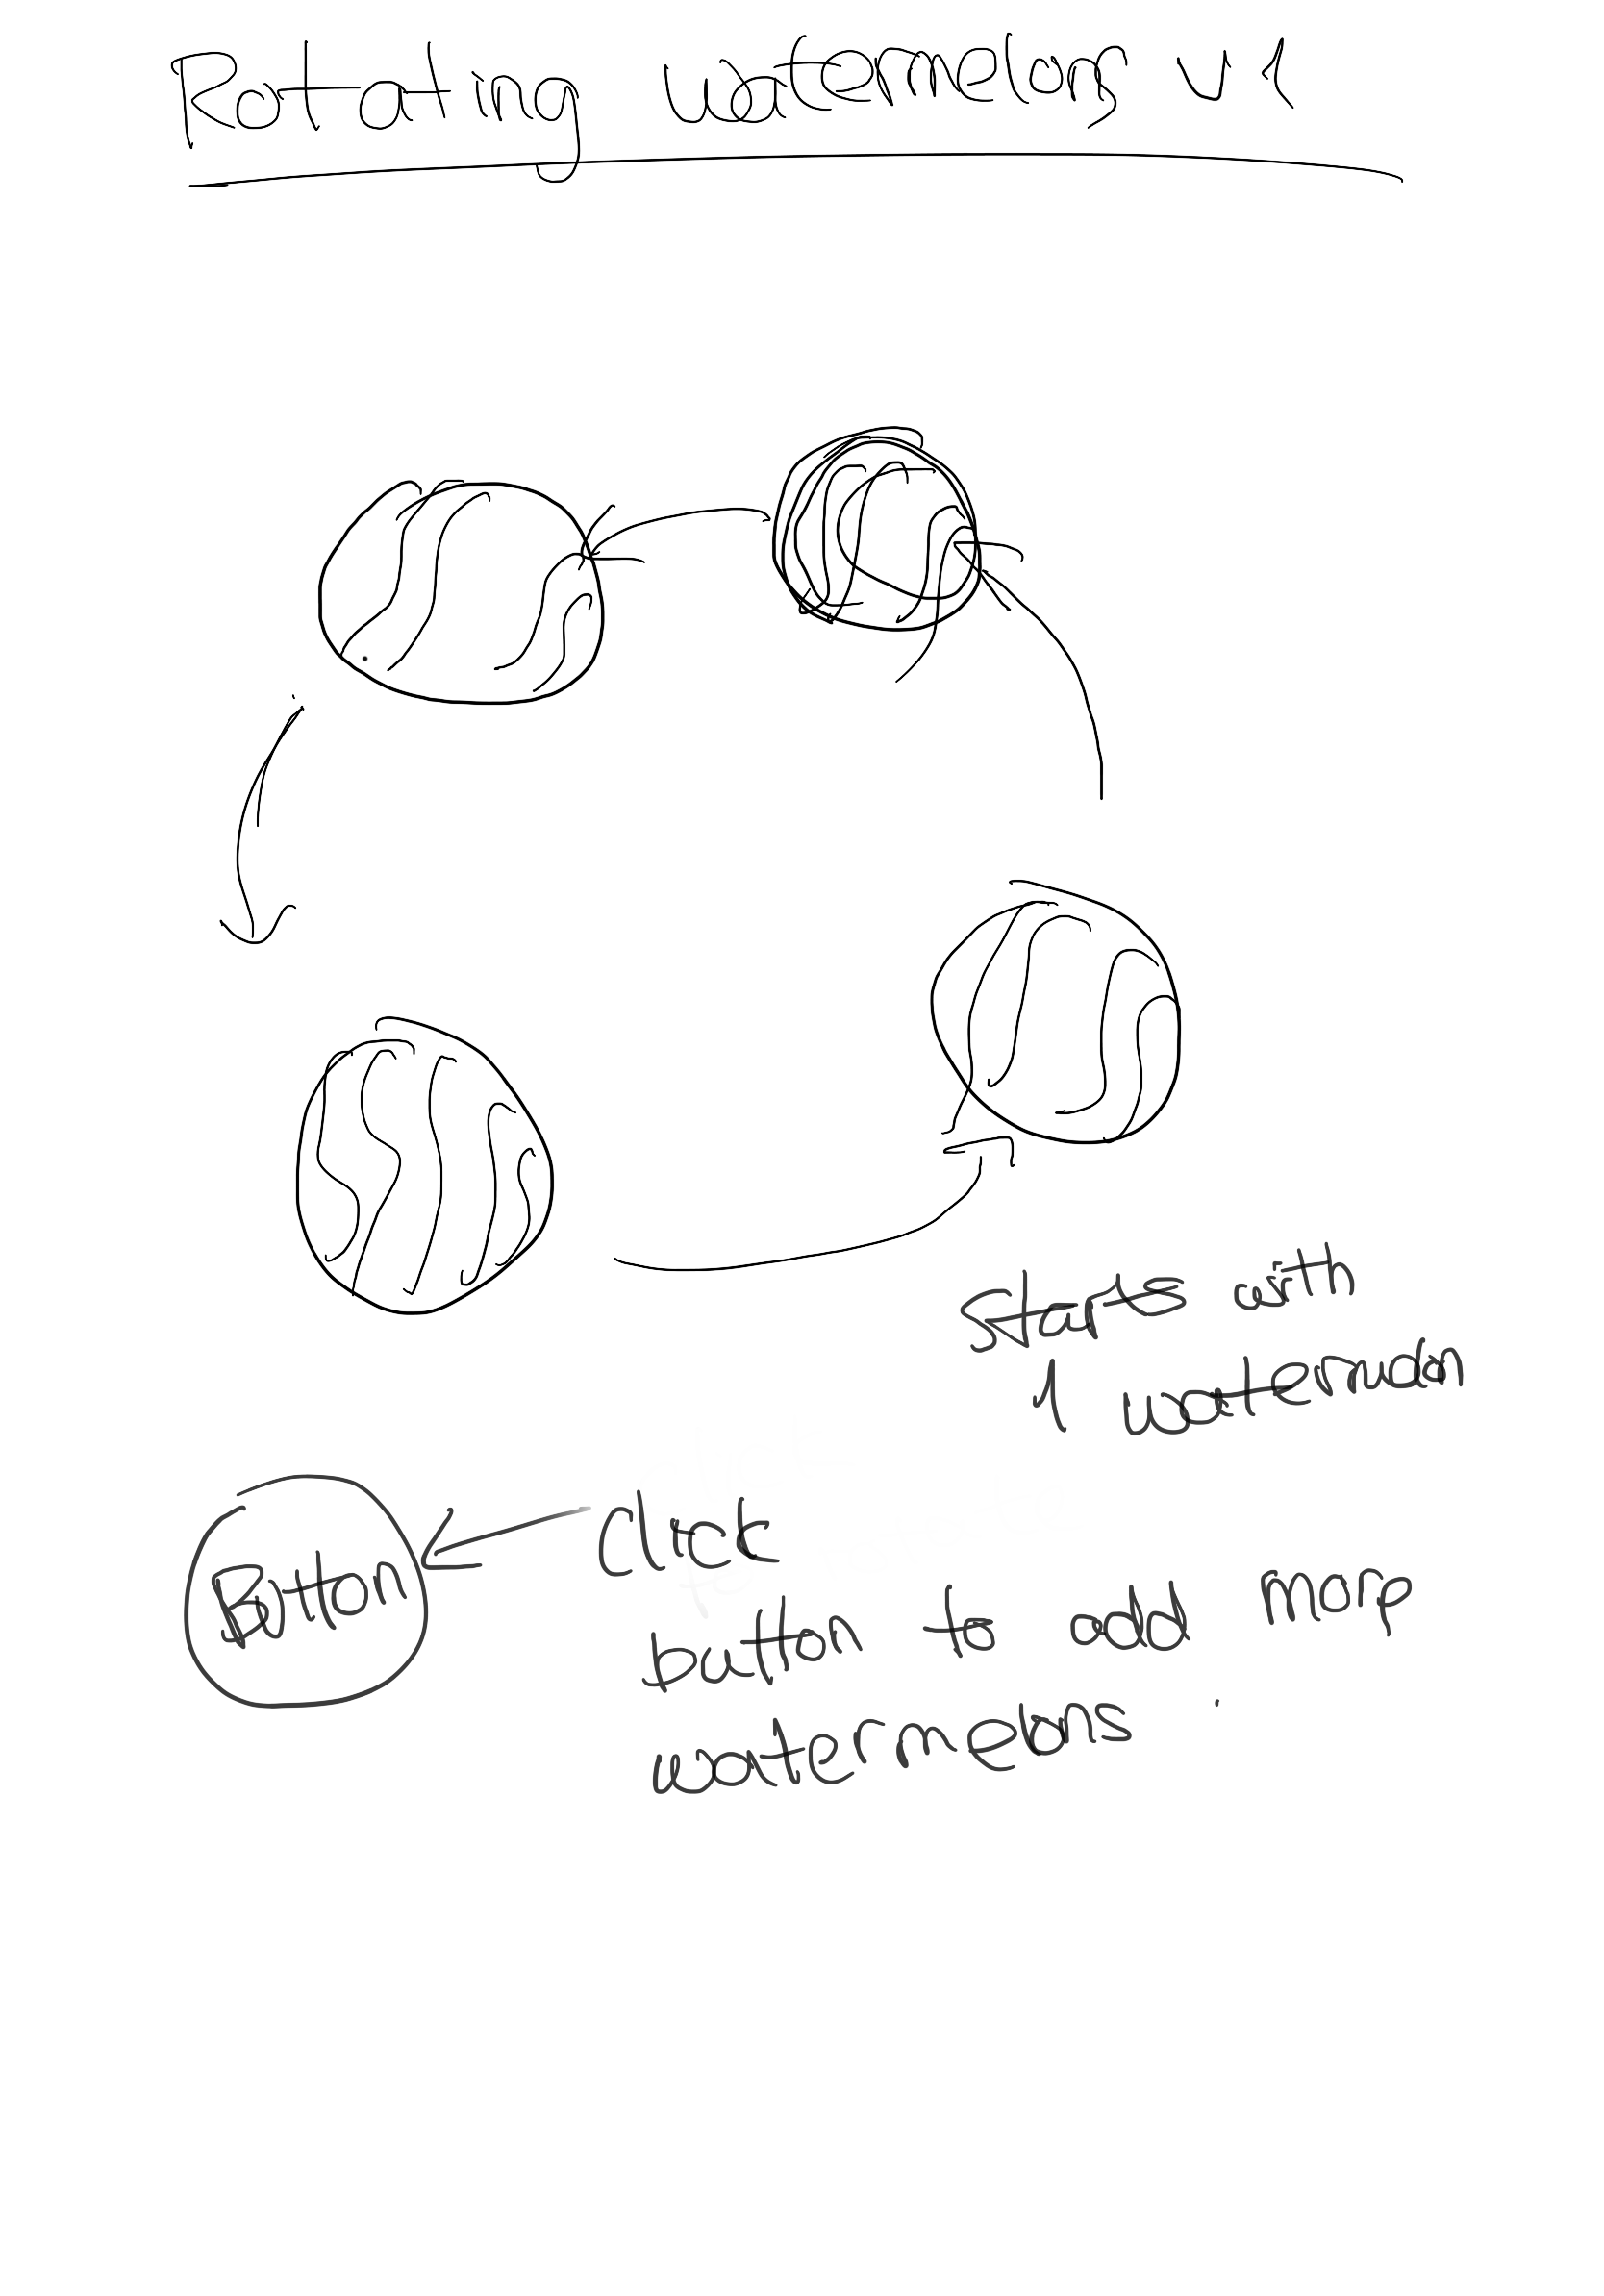 Rotating watermelons v1
Starts with
1 watermelon
Button
Click
button to add more
watermelons